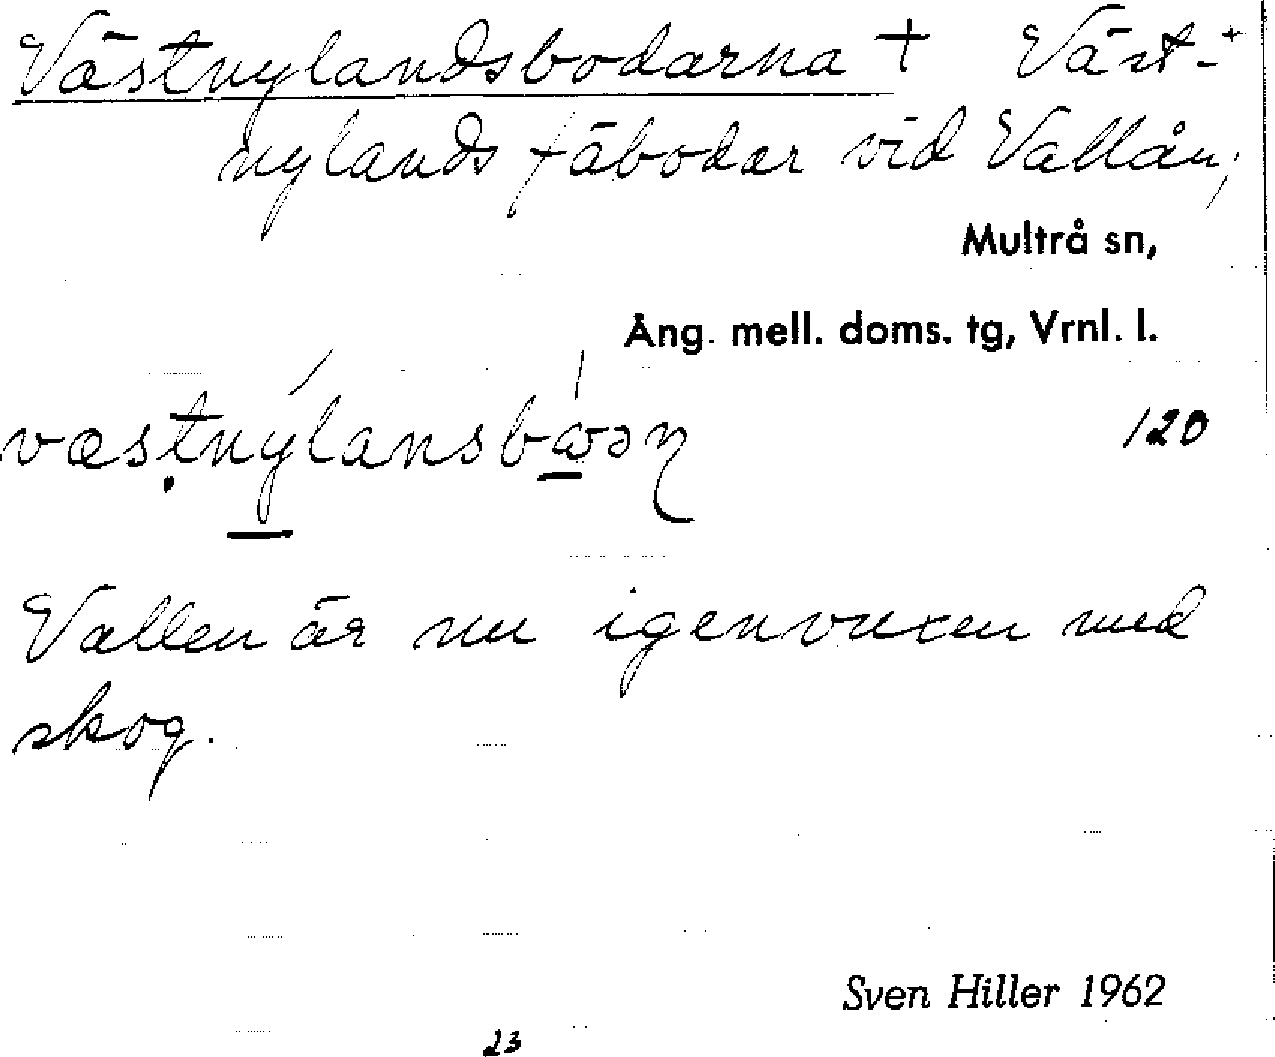 Västnylandsbodarna + Väst-+
nylands fäbodar vid Vallån;
Multrå sn,
Ång. mell. doms. tg, Vrnl. l.
120
Vallen är nu igenvuxen med
skog.
Sven Hiller 1962
23